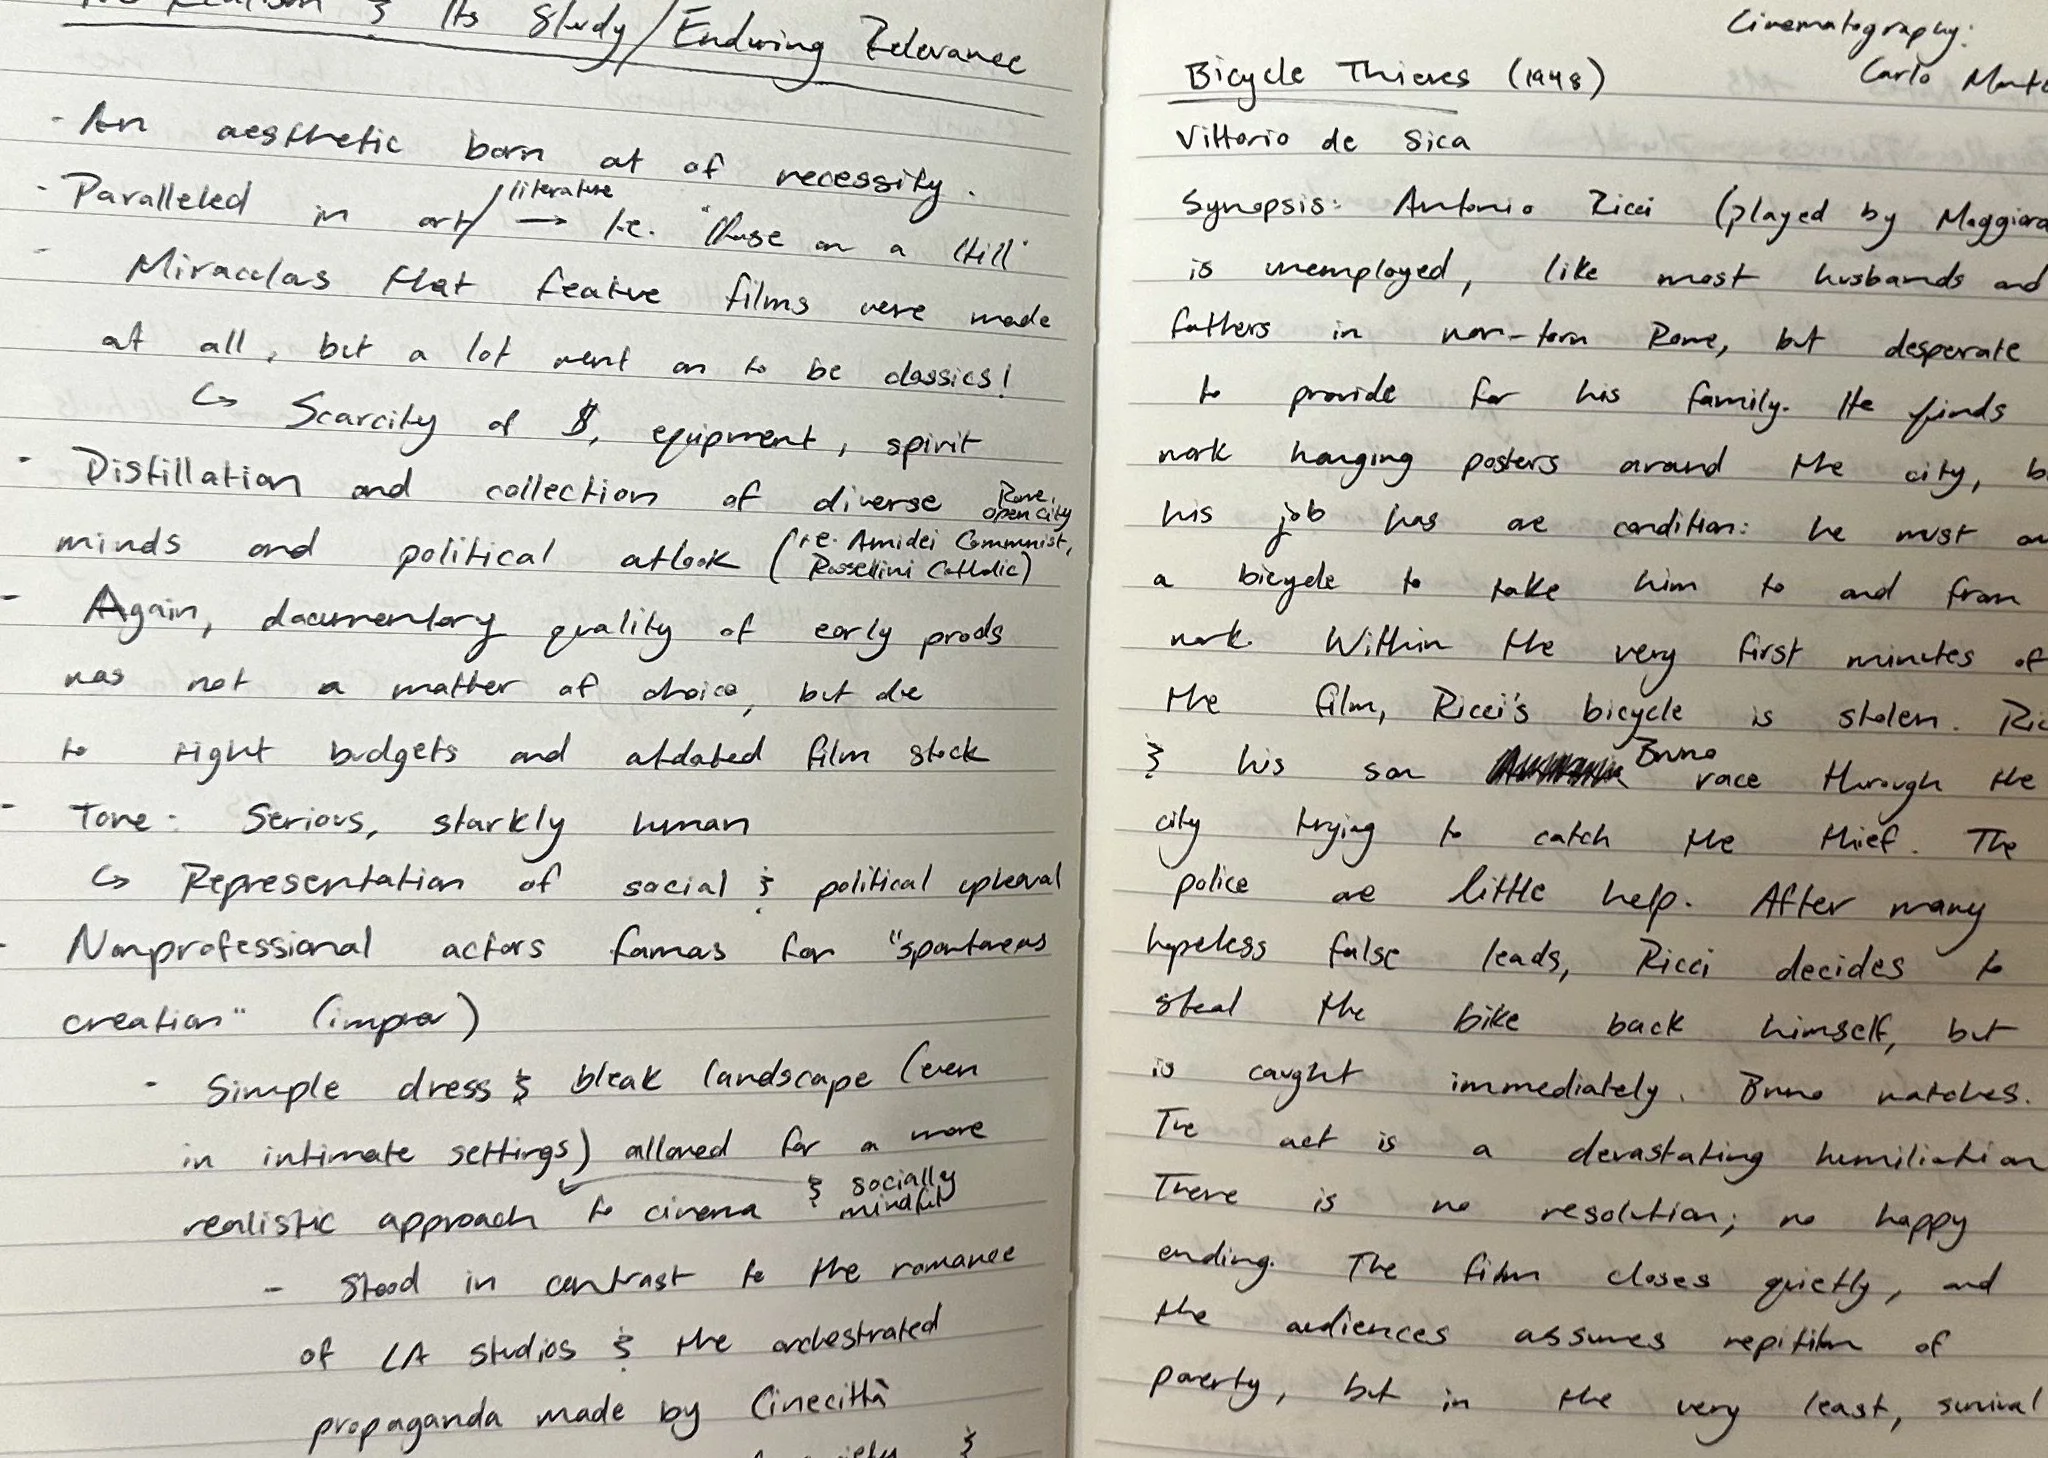 & Its Study/Enduring Relevance
- An aesthetic born out of necessity.
- Paralleled in art/literature → i.e. "House on a Hill"
- Miraculous that feature films were made
at all, but a lot went on to be classics!
↳ Scarcity of $, equipment, spirit
- Distillation and collection of diverse
minds and political outlook (i.e. Rome, open city Amidei Communist, Rossellini Catholic)
- Again, documentary quality of early prods
was not a matter of choice, but due
to tight budgets and outdated film stock
- Tone: Serious, starkly human
↳ Representation of social & political upheaval
- Nonprofessional actors famous for "spontaneous
creation" (improv)
- Simple dress & bleak landscape (even
in intimate settings) allowed for a more
realistic approach to cinema & socially mindful
- Stood in contrast to the romance
of LA studios & the orchestrated
propaganda made by Cinecittà
&
Cinematography:
Carlo
Bicycle Thieves (1948)
Vittorio de Sica
Synopsis: Antonio Ricci (played by
is unemployed, like most husbands and
fathers in war-torn Rome, but desperate
to provide for his family. He finds
work hanging posters around the city,
his job has one condition: he must
a bicycle to take him to and from
work. Within the very first minutes of
the film, Ricci's bicycle is stolen.
& his son Bruno race through the
city trying to catch the thief. The
police are little help. After many
hopeless false leads, Ricci decides to
steal the bike back himself, but
is caught immediately. Bruno watches.
The act is a devastating humiliation
There is no resolution; no happy
ending. The film closes quietly, and
the audiences assumes repitition of
poverty, but in the very least, survival